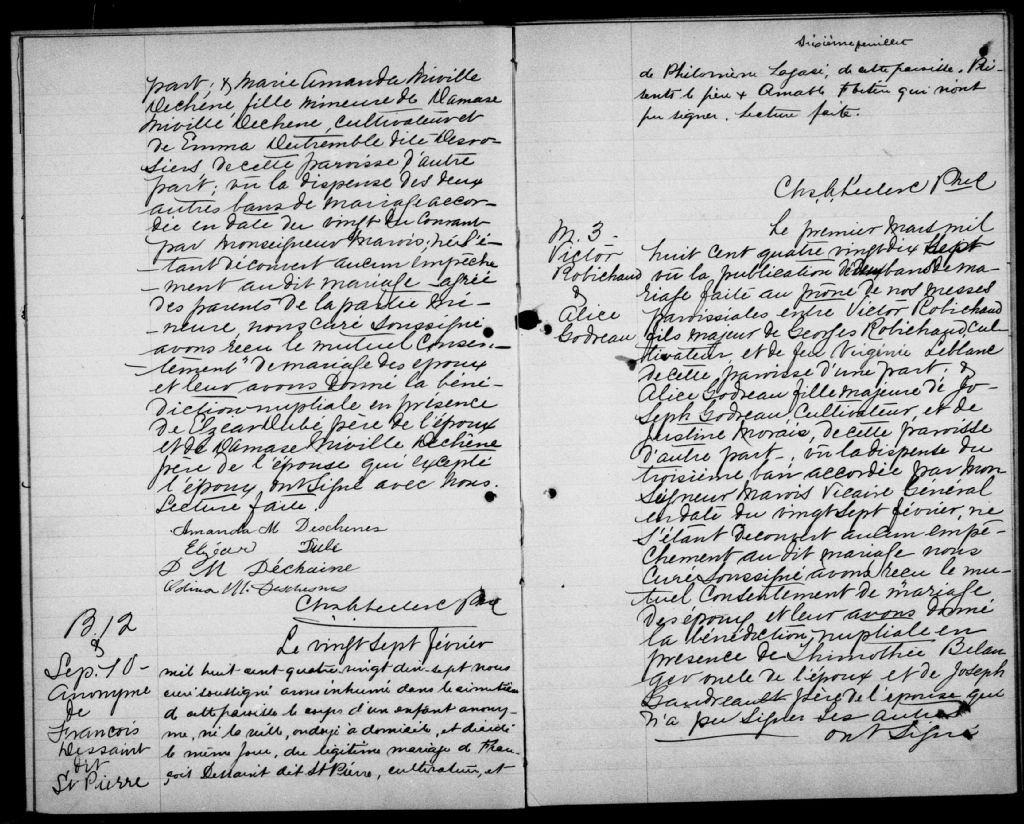 part; & Marie Amanda Miville
Dechêne fille mineure de Damase
Miville Dechene, cultivateur et
de Emma Deitremble dite Desro-
siers de cette paroisse d'autre
part; vu la dispense des deux
autres bans de mariage accor-
dée en date du vingt du courant
par Monseigneur Marois; ne s'é-
-tant découvert aucun empêche
-ment au dit mariage
des parents de la partie mi-
-neure, nous curé soussigné
avons reçu le mutuel consen-
-tement de mariage des époux
et leur avons donné la béné-
diction nuptiale en présence
de Elzear Dubé père de l'époux
et de Damase Miville Dechêne
père de l'épouse qui excepté
l'époux ont signé avec nous.
Lecture faite.
Amanda M Deschenes
Elzéar Dubé
D M Déchaine
M. Deschesnes
Chs. A. Leclerc Ptre
B. 12
&
Sep. 10 -
Anonyme
de
François
Dessaint
dit
St Pierre
Le vingt sept février
mil huit cent quatre-vingt dix-sept nous
curé soussigné avons inhumé dans le cimetière
de cette paroisse le corps d'un enfant anony-
me, né la veille, ondoyé à domicile, et décédé
le même jour, du légitime mariage de Fran-
çois Dessaint dit St Pierre, cultivateur, et
Sixième feuillet
de Philomène Lagacé, de cette paroisse. Pré-
sents le père & Amable qui n'ont
pu signer. Lecture faite.
Chs. A. Leclerc Ptre
M. 3 -
Victor
Robichaud
&
Alice
Godreau
Le premier Mars mil
huit cent quatre vingt dix sept
vu la publication de deux bans de ma-
riage faite au prône de nos messes
paroissiales entre Victor Robichaud
fils majeur de Georges Robichaud cul-
tivateur, et de feu Virginie Leblanc
de cette paroisse d'une part; &
Alice Godreau fille majeure de Jo-
seph Godreau cultivateur, et de
Justine Morais, de cette paroisse
d'autre part, vu la dispense du
troisième ban accordée par Mon
Seigneur Marois Vicaire Général
en date du vingt sept février, ne
s'étant découvert aucun empê-
chement au dit mariage nous
Curé soussigné avons reçu le mu-
tuel consentement de mariage
des époux et leur avons donné
la bénédiction nuptiale en
présence de Thimothée Bélan
ger oncle de l'époux et de Joseph
Gaudreault père de l'épouse qui
n'a pu signer Les autres
ont signé